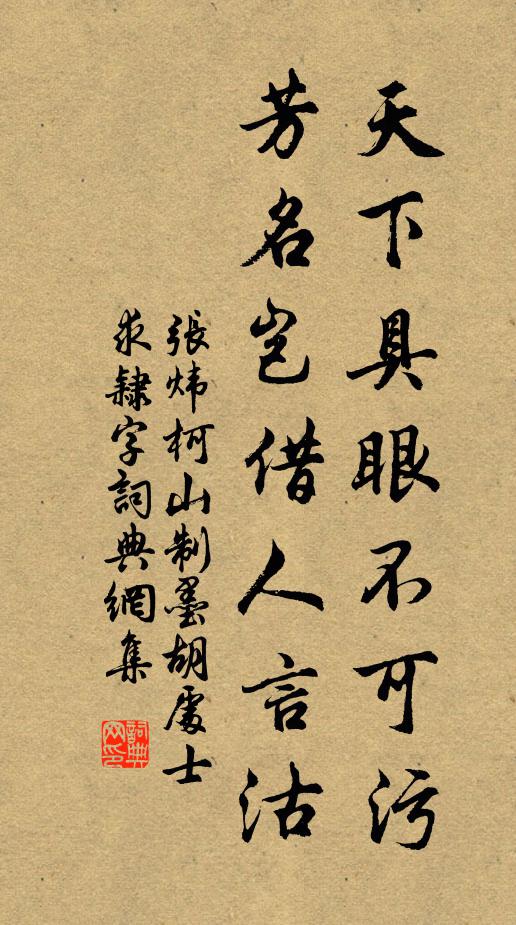 天下具眼不可污
芳名岂借人言沽
張炜柯山制墨胡處士
求隸字詞典網集
詞典网印